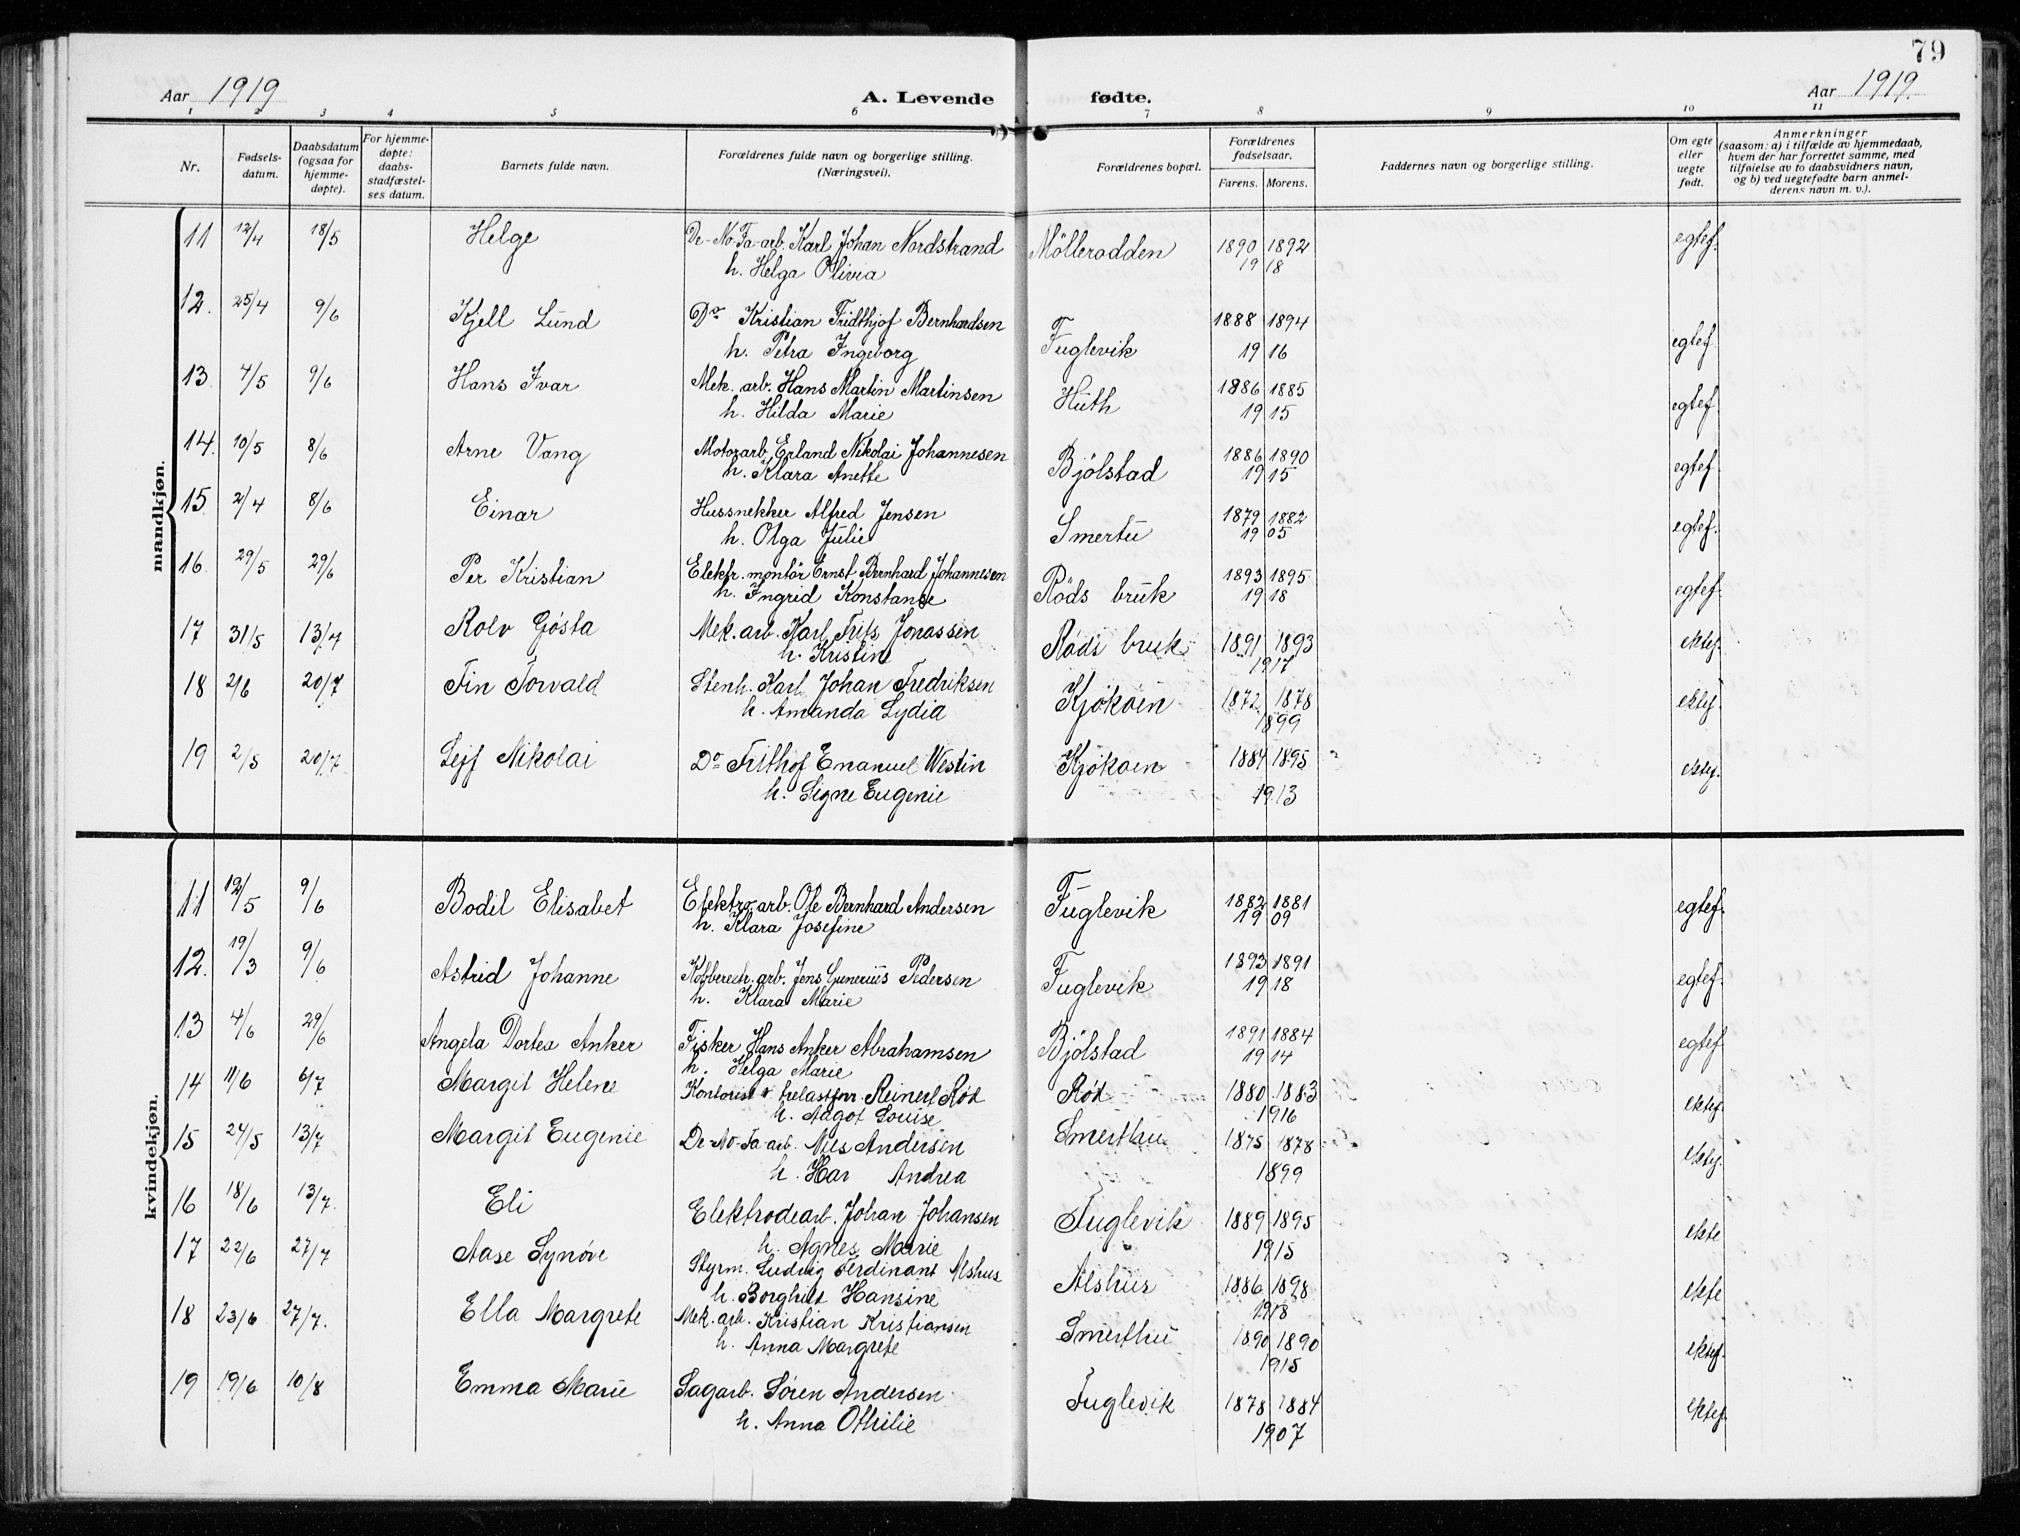 79
Aar 1919
A. Levende
fødte.
Aar 1919.
1 2 3 4 5 6 7 8 9 10 11
Nr.
Fødsels-
datum.
Daabsdatum
(ogsaa for
hjemme-
døpte).
For hjemme-
døpte:
daabs-
stadfæstel-
ses datum.
Barnets fulde navn.
Forældrenes fulde navn og borgerlige stilling.
(Næringsvei).
Forældrenes bopæl.
Forældrenes
fødselsaar.
Farens. Morens.
Faddernes navn og borgerlige stilling.
Om egte
eller
uegte
født.
Anmerkninger
(saasom: a) i tilfælde av hjemmedaab,
hvem der har forrettet samme, med
tilføielse av to daabsvidners navn,
og b) ved uegtefødte barn anmel-
derens navn m. v.).
mandkjøn.
11 12/4 18/5 Helge De-No-Fa-arb. Karl Johan Nordstrand Möllerodden 1890 1892 egtef.
h. Helga Olivia 19 18
12. 25/4 9/6 Kjell Lund Do Kristian Fridthjof Bernhardsen Fuglevik 1888 1894 egtef
h. Petra Ingeborg 19 16
13. 4/5 9/6 Hans Ivar Mek. arb. Hans Martin Martinsen Huth 1886 1885 egtef
h. Hilda Marie 19 15
14. 10/5 8/6 Arne Vang Motorarb. Erland Nikolai Johannesen Bjölstad 1886 1890 egtef
h. Klara Anette 19 15
15. 2/4 8/6 Einar Hussnekker Alfred Jensen Smertu 1879 1882 egtef.
h. Olga Julie 19 05
16. 29/5 29/6 Per Kristian Elektr. montör Ernst Bernhard Johannesen Röds bruk 1893 1895 egtef.
h. Ingrid Konstanse 19 18
17 31/5 13/7 Rolv Gøsta Mek. arb. Karl Frits Jonassen Røds bruk 1891 1893 ektef.
h. Kristine 1917
18 2/6 20/7 Fin Torvald Stenh. Karl Johan Fredriksen Kjøkøen 1872 1878 ektef.
h. Amanda Lydia 1899
19 2/5 20/7 Leif Nikolai Do Frithof Emanuel Westin Kjøkøen 1884 1895 ektef.
h. Signe Eugenie 1913
kvindekjøn.
11 12/5 9/6 Bodil Elisabet Elektro.arb. Ole Bernhard Andersen Fuglevik 1882 1881 egtef.
h. Klara Josefine 19 09
12. 19/3 9/6 Astrid Johanne arb. Jens Gunerius Pedersen Fuglevik 1893 1891 egtef.
h. Klara Marie 19 18
13 4/6 29/6 Angela Dortea Anker Fisker Hans Anker Abrahamsen Bjölstad 1891 1884 egtef
h. Helga Marie 19 14
14 11/6 6/7 Margit Helene Kontorist Reinert Rød Rød 1880 1883 ektef.
h. Aagot Louise 1916
15 24/5 13/7 Margit Eugenie De-No-Fa-arb. Nils Andersen Smerthu 1875 1878 ektef.
h. Andrea 1899
16 18/6 13/7. Eli Elektrodearb. Johan Johansen Fuglevik 1889 1895 ekte
h. Agnes Marie 1915
17 22/6 27/7 Aase Synøve Styrm. Ludvig Ferdinant Alshus Alshus 1886 1898 ekte
h. Borghild Hansine 1918
18 23/6 27/7. Ella Margrete Mek. arb. Kristian Kristiansen Smerthu 1890 1890 ektef
h. Anna Margrete 1915
19 19/6 10/8 Emma Marie Sagarb. Søren Andersen Fuglevik 1878 1884 ektef
h. Anna Othilie 1907